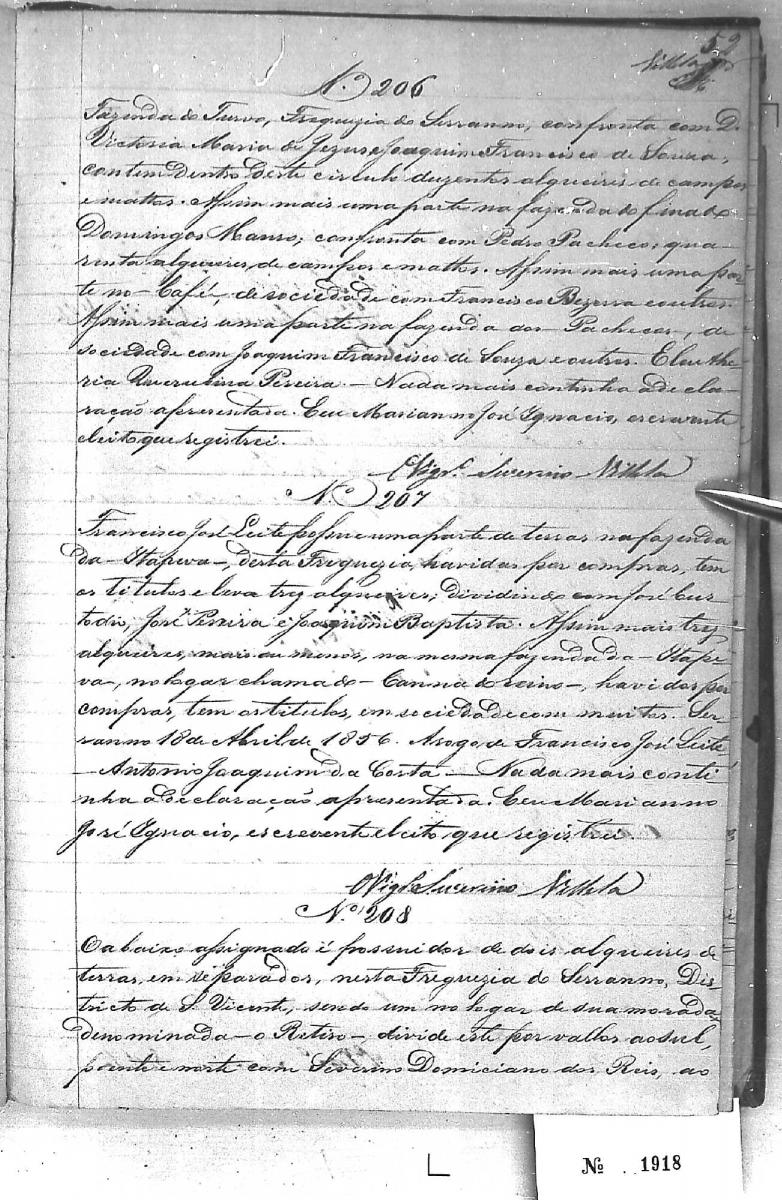 52
Villela
N. 206
Fazenda do Turvo, Freguezia do Serranno, confronta com D.
Victoria Maria de Jezus e Joaquim Francisco de Souza,
contem dentro deste circulo duzentos alqueires de campos
e mattos. Assim mais uma parte na fazenda do finado
Domingos Manso, confronta com Pedro Pacheco, qua-
renta alqueires, de campos e mattos. Assim mais uma par-
te no - Café, de sociedade com Francisco Bezerra e outros.
Assim mais uma parte na fazenda dos - Pachecos -, de
sociedade com Joaquim Francisco de Souza e outros. Eleuthe
ria Querubina Pereira. - Nada mais continha a decla-
ração apresentada. Eeu Marianno José Ignacio, escrevente
eleito que registrei.
O Vigr.º Severino Villela
N. 207
Francisco José Leite possue uma parte de terras na fazenda
da - Itapeva -, desta Freguezia, havidas por compras, tem
os titulos e leva trez alqueires; dividindo com José Cus
todio, José Pereira e Joaquim Baptista. Assim mais trez
alqueires, mais ou menos, na mesma fazenda da - Itape
va -, no logar chamado - Canna do reino -, havidos por
compras, tem os titulos, em sociedade com muitos. Ser-
ranno 18 de Abril de 1856. Arogo de Francisco José Leite -
- Antonio Joaquim da Costa - Nada mais conti
nha a declaração apresentada. Eeu Marianno
José Ignacio, escrevente eleito que registrei.
O Vigr.º Severino Villela
N.º 208
O abaixo assignado é possuidor de dois alqueires de
terras, em separados, nesta Freguezia do Serranno, Dis
tricto de S. Vicente, sendo um no logar de sua morada
denominada - o Retiro -, divide este por vallos ao sul,
poente e norte com Severino Domiciano dos Reis, ao
Nº 1918